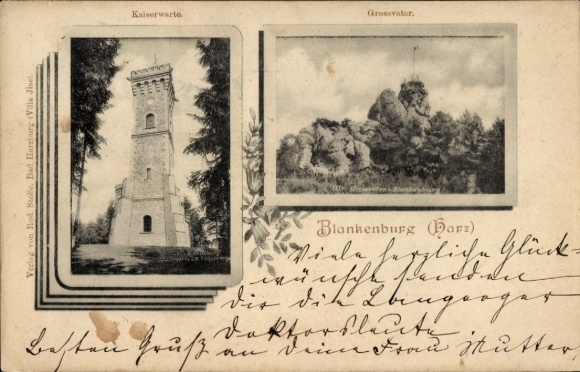 Kaiserwarte.
Grossvater.
Verlag von Rud. Stolle, Bad Harzburg (Villa Ilse).
Grossvater i. Blankenburg
Blankenburg (Harz)
Viele herzliche Glück-
wünsche senden
dir die Langeooger
Doktorsleute
Besten Gruß an deine Frau Mutter.